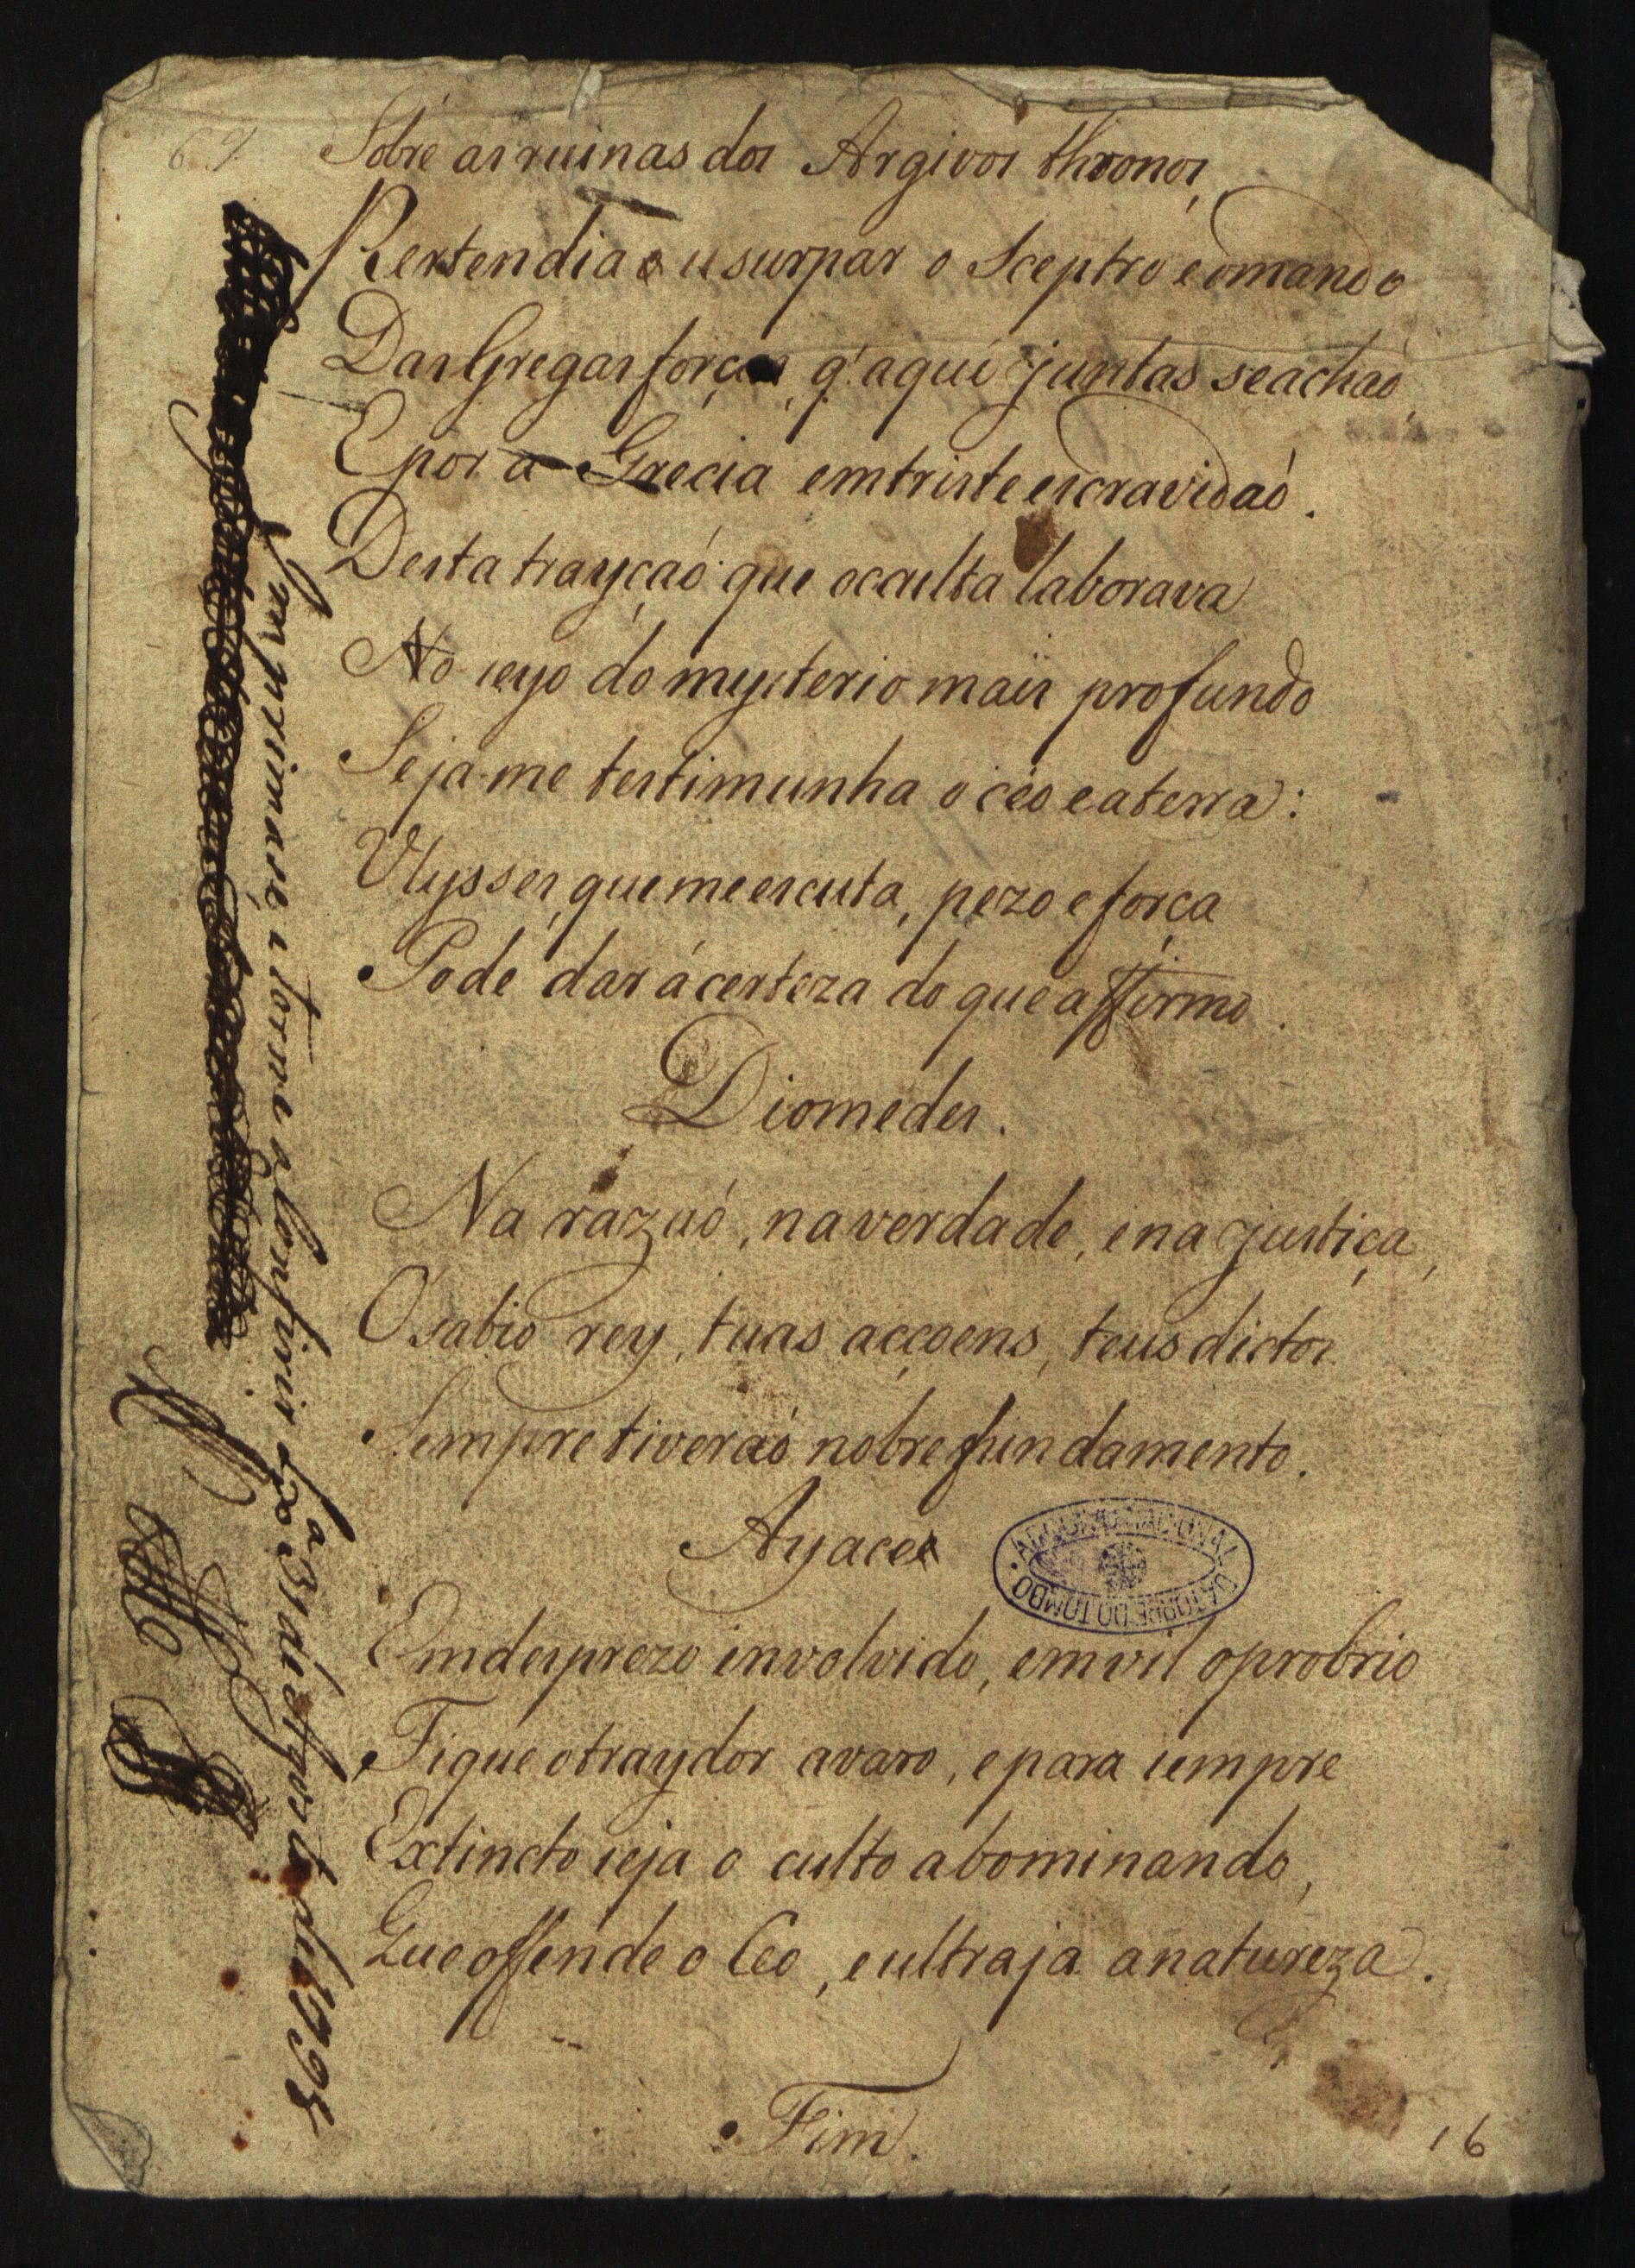 69
Sobre as ruinas dos Argivos thronos,
Pertendia usurpar o Sceptro e omando
Das Gregas forças, q' aqui juntas se achaõ,
E por a Grecia em triste escravidaõ.
Desta trayçaõ que occulta laborava
No seyo do mysterio mais profundo
Seja-me testimunha o céo e a terra:
Ulysses, que me escuta, pezo e força
Pode dar á certeza do que affirmo.
Diomedes.
Na razaõ, na verdade, e na justiça,
O sabio rey, tuas acçoens, teus dictos
Sempre tiveraõ nobre fundamento.
Ayace
Em desprezo involvido, em vil oprobrio
Fique o traydor avaro, e para sempre
Extincto seja o culto abominando,
Que offende o Ceo, e ultraja a natureza.
Fim.
16
Imprimase, e torne a conferir Lxª 31 de Agosto de 1795
ARQUIVO NACIONAL DA TORRE DO TOMBO